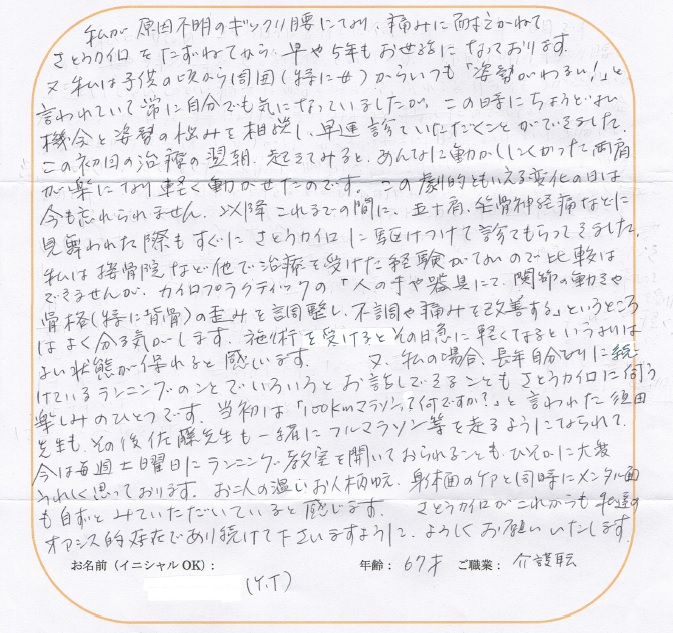 私が原因不明のギックリ腰になり、痛みに耐えかねて
さとうカイロをたずねてから、早や5年もお世話になっております。
又、私は子供の頃から周囲(特に女)からいつも「姿勢がわるい!」と
言われていて常に自分でも気になっていましたが、この時にちょうどよい
機会と姿勢の悩みを相談し、早速診ていただくことができました。
この初回の治療の翌朝、起きてみると、あんなに動かしにくかった両肩
が楽になり軽く動かせたのです。この劇的ともいえる変化の日は
今も忘れられません。以降これまでの間に、五十肩、坐骨神経痛などに
見舞われた際もすぐにさとうカイロに駆けつけて診てもらってきました。
私は接骨院など他で治療を受けた経験がないので比較は
できませんが、カイロプラクティックの「人の手や器具にて、関節の動きや
骨格(特に背骨)の歪みを調整し、不調や痛みを改善する」というところ
はよく分る気がします。施術を受けるとその日急に軽くなるというよりは
よい状態が保たれると感じます。 又、私の場合、長年自分なりに続
けているランニングのことでいろいろとお話しできることもさとうカイロに伺う
楽しみのひとつです。当初は「100kmマラソンって何ですか?」と言われた須田
先生も、その後佐藤先生も一緒にフルマラソン等を走るようになられて、
今は毎週土曜日にランニング教室を開いておられることも、ひそかに大変
うれしく思っております。お二人の温いお人柄ゆえ、身体面のケアと同時にメンタル面
も自ずとみていただいていると感じます。 さとうカイロがこれからも私達の
オアシス的存在であり続けて下さいますように、よろしくお願いいたします。
お名前(イニシャルOK): (Y.T) 年齢: 67才 ご職業: 介護転